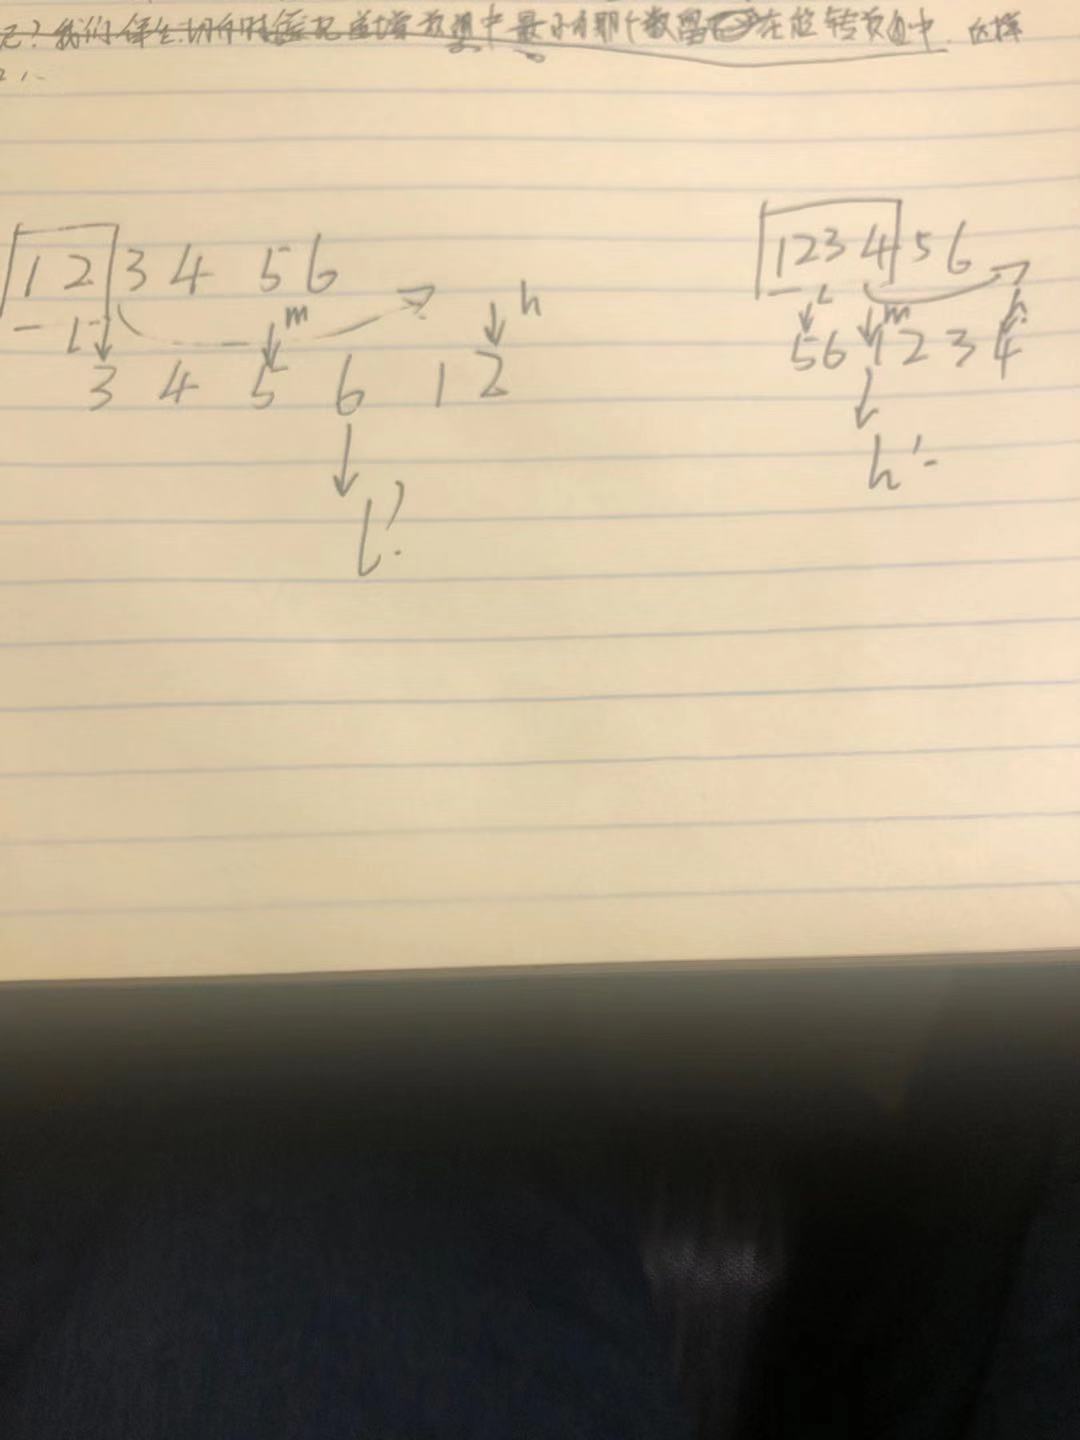 我们
中最小的那个数留在旋转数组中.这样
1 2 3 4 5 6
1 2 3 4 5 6
l m h
l m h
3 4 5 6 1 2
5 6 1 2 3 4
l'
h'